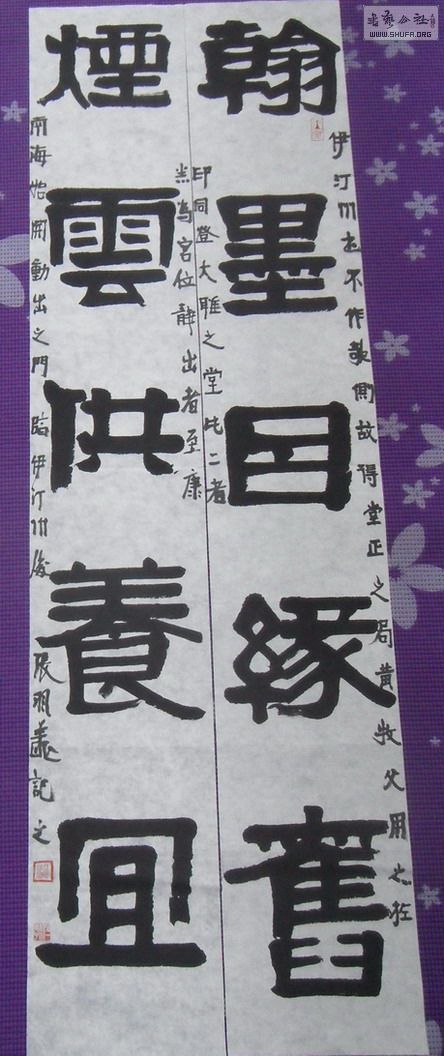 書藝公社
WWW.SHUFA.ORG
翰墨因緣舊
伊汀州不作欹側故得堂正之局黃牧父用之
印同登大雅之堂此二者
為宮位靜出者至康
煙雲供養宜
南海始開動出之門臨伊汀州後張明義記之